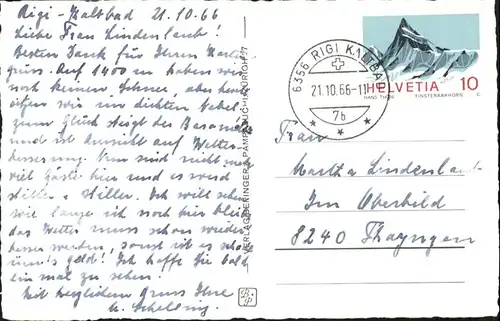 Rigi-Kaltbad 21.10.66
Liebe Frau Lindenlaub!
Besten Dank für Ihren Karten-
gruss. Auf 1400 m haben wir
noch keinen Schnee, aber heute
sitzen wir im dichten Nebel.
zum Glück steigt das Barometer
und ist Aussicht auf Wetter-
besserung. Nun sind nicht mehr
viel Gäste hier und es wird
stiller u. stiller. Ich will sehen
wie lange ich noch hier bleibe
das Wetter muss schon wieder
besser werden, sonst ist es schade
um's Geld! Ich hoffe Sie bald
ein mal zu sehen.
Mit herzlichem Gruss Ihre
Schelling.
VERLAG BERINGER & PAMPALUCHI ZÜRICH 7
B P
6356 RIGI KALTBAD
21.10.66-11
7b
HELVETIA 10
HANS THÖNI FINSTERAARHORN C
Frau
Martha Lindenlaub
Im Oberbild
8240 Thayngen